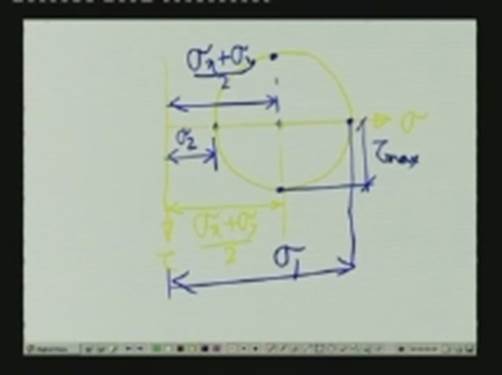 σx+σy
2
σ
σ2
τmax
σx+σy
2
τ
σ1